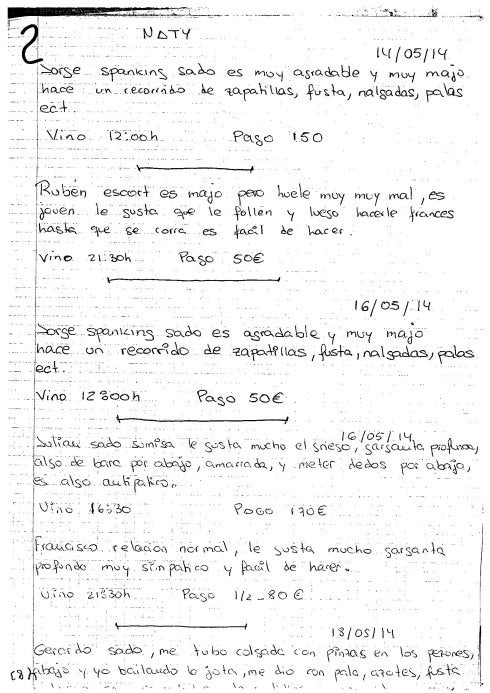 2
NATY
14/05/14
Jorge spanking sado es muy agradable y muy majo
hace un recorrido de zapatillas, fusta, nalgadas, palas
ect.
Vino 12:00h Pago 150
Rubén escort es majo pero huele muy muy mal, es
joven le gusta que le follen y luego hacerle frances
hasta que se corra es facil de hacer.
Vino 21:30h Pago 50€
16/05/14
Jorge spanking sado es agradable y muy majo
hace un recorrido de zapatillas, fusta, nalgadas, palas
ect.
Vino 12:00h Pago 50€
16/05/14
Julian sado sumisa le gusta mucho el griego, garganta profunda,
algo de bara por abajo, amarrada, y meter dedos por abajo,
es algo antipatico..
Vino 16:30 Pago 170€
Francisco relacion normal, le gusta mucho garganta
profunda muy simpatico y facil de hacer.
Vino 21:30h Pago 1/2 _ 80€
18/05/14
Gerardo sado, me tubo colgada con pinzas en los pezones,
abajo y yo bailando la jota, me dio con pala, azotes, fusta